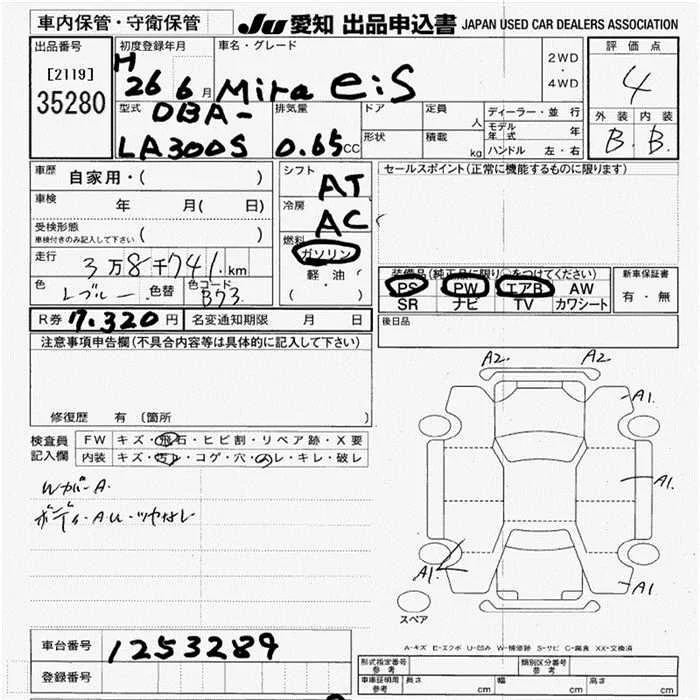 車内保管・守衛保管
JU 愛知 出品申込書 JAPAN USED CAR DEALERS ASSOCIATION
出品番号
[2119]
35280
初度登録年月
H 26 6月
車名・グレード
Mira e:S
2WD
・
4WD
評価点
4
外装 内装
B. B.
型式
DBA-
LA300S
排気量
0.65CC
ドア
形状
定員 人
積載 kg
ディーラー・並行
モデル年式 年
ハンドル 左・右
車歴
自家用・( )
車検
年 月( 日)
受検形態
車検付きのみ記入して下さい ( )
走行
3万8千741km
色
Lブルー
色替
色コード
B73
シフト
AT
冷房
AC
燃料
ガソリン
軽油
( ・ )
セールスポイント(正常に機能するものに限ります)
装備品(純正品に限り○をつけてください)
PS PW エアB AW
SR ナビ TV カワシート
新車保証書
有・無
後日品
R券 7.320円
名変通知期限 月 日
注意事項申告欄(不具合内容等は具体的に記入して下さい)
修復歴 有 (箇所 )
検査員
記入欄
FW キズ・飛石・ヒビ割・リペア跡・X要
内装 キズ・汚レ・コゲ・穴・のレ・キレ・破レ
Wカバー A.
ボディ・A.U・ツヤなし
A2. A2
A1.
A1.
A1.
A1
スペア
A-キズ E-エクボ U-凹み W-補修跡 S-サビ C-腐食 XX-交換済
車台番号 1253289
登録番号
形式指定番号
参考
類別区分番号
参考
車庫証明用
参考
長さ cm 幅 cm 高さ cm